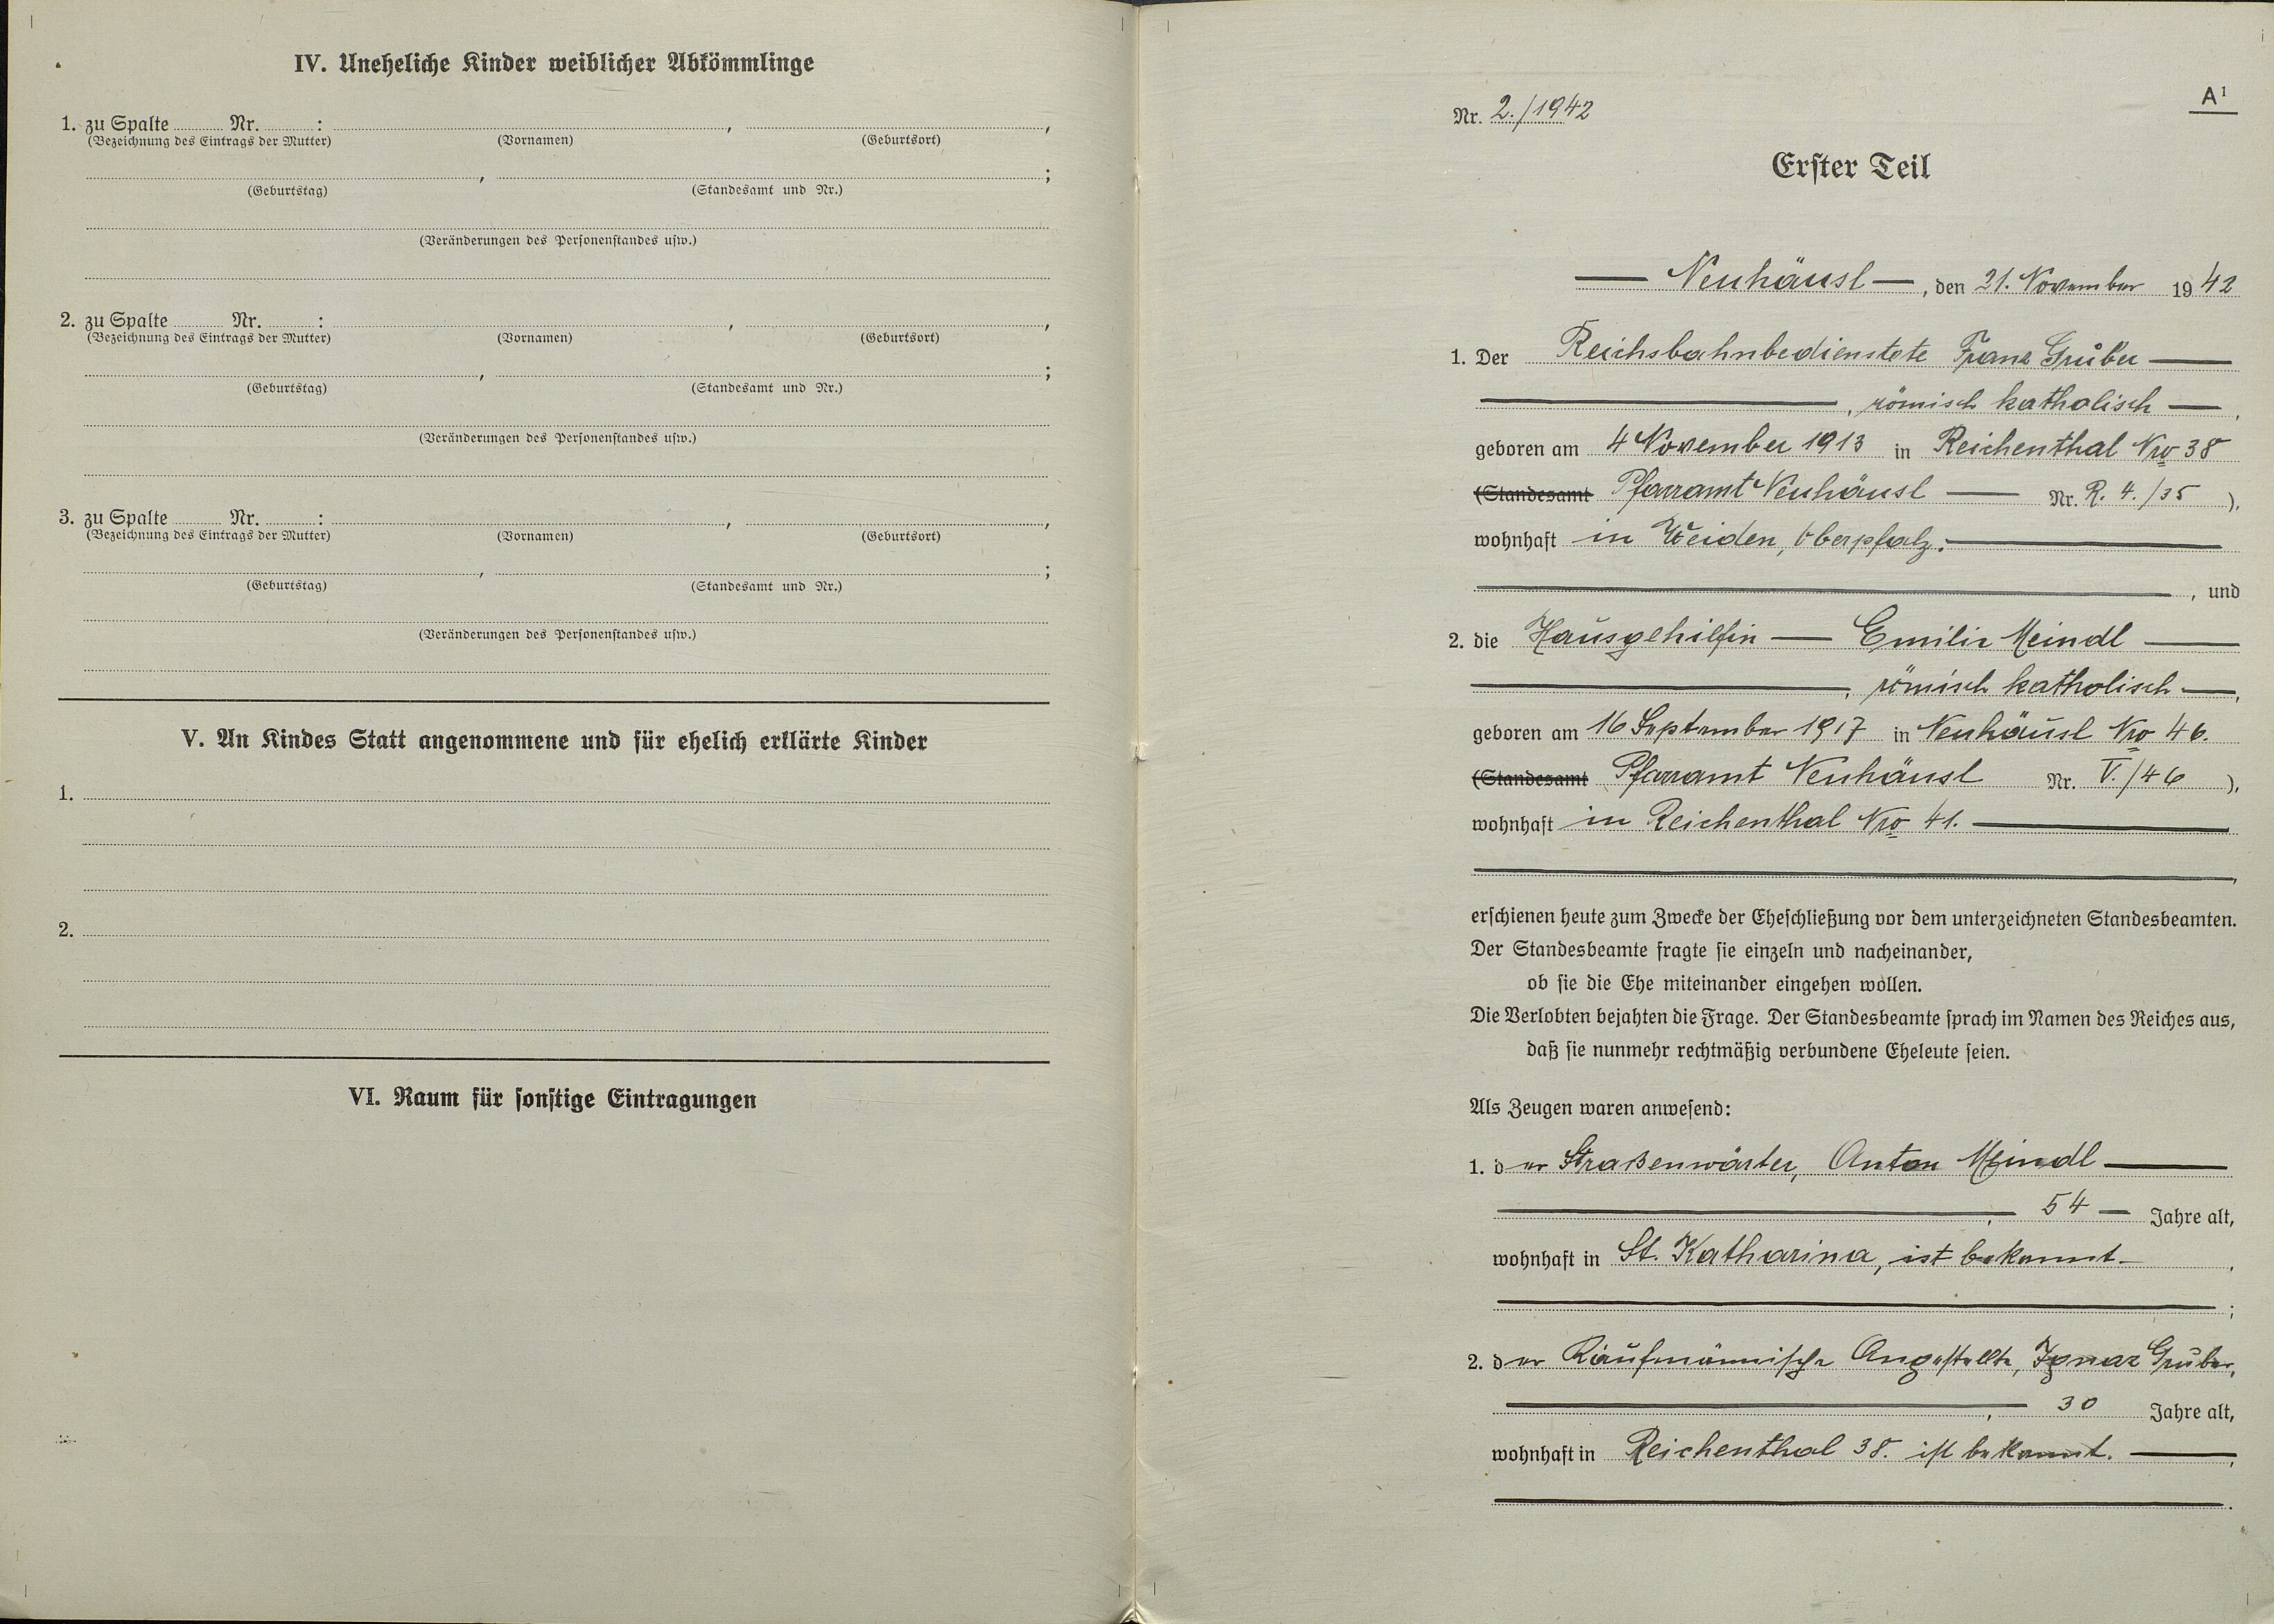 IV. Uneheliche Kinder weiblicher Abkömmlinge
1. zu Spalte Nr. : , ,
(Bezeichnung des Eintrags der Mutter) (Vornamen) (Geburtsort)
, ;
(Geburtstag) (Standesamt und Nr.)
(Veränderungen des Personenstandes usw.)
2. zu Spalte Nr. : , ,
(Bezeichnung des Eintrags der Mutter) (Vornamen) (Geburtsort)
, ;
(Geburtstag) (Standesamt und Nr.)
(Veränderungen des Personenstandes usw.)
3. zu Spalte Nr. : , ,
(Bezeichnung des Eintrags der Mutter) (Vornamen) (Geburtsort)
, ;
(Geburtstag) (Standesamt und Nr.)
(Veränderungen des Personenstandes usw.)
V. An Kindes Statt angenommene und für ehelich erklärte Kinder
1.
2.
VI. Raum für sonstige Eintragungen
A¹
Nr. 2./1942
Erster Teil
— Neuhäusl —, den 21. November 1942
1. Der Reichsbahnbedienstete Franz Gruber —
—, römisch katholisch —,
geboren am 4 November 1913 in Reichenthal Nro 38
(Standesamt Pfarramt Neuhäusl — Nr. R. 4./35 ),
wohnhaft in Weiden, Oberpfalz. —
—, und
2. die Hausgehilfin — Emilie Meindl —
—, römisch katholisch —,
geboren am 16 September 1917 in Neuhäusl Nro 46.
(Standesamt Pfarramt Neuhäusl Nr. V./46 ),
wohnhaft in Reichenthal Nro 41. —
—,
erschienen heute zum Zwecke der Eheschließung vor dem unterzeichneten Standesbeamten.
Der Standesbeamte fragte sie einzeln und nacheinander,
ob sie die Ehe miteinander eingehen wollen.
Die Verlobten bejahten die Frage. Der Standesbeamte sprach im Namen des Reiches aus,
daß sie nunmehr rechtmäßig verbundene Eheleute seien.
Als Zeugen waren anwesend:
1. der Straßenwärter, Anton Meindl —
—, 54 — Jahre alt,
wohnhaft in St. Katharina, ist bekannt —,
—;
2. der Kaufmännische Angestellte, Ignaz Gruber,
—, 30 Jahre alt,
wohnhaft in Reichenthal 38. ist bekannt. —,
—.